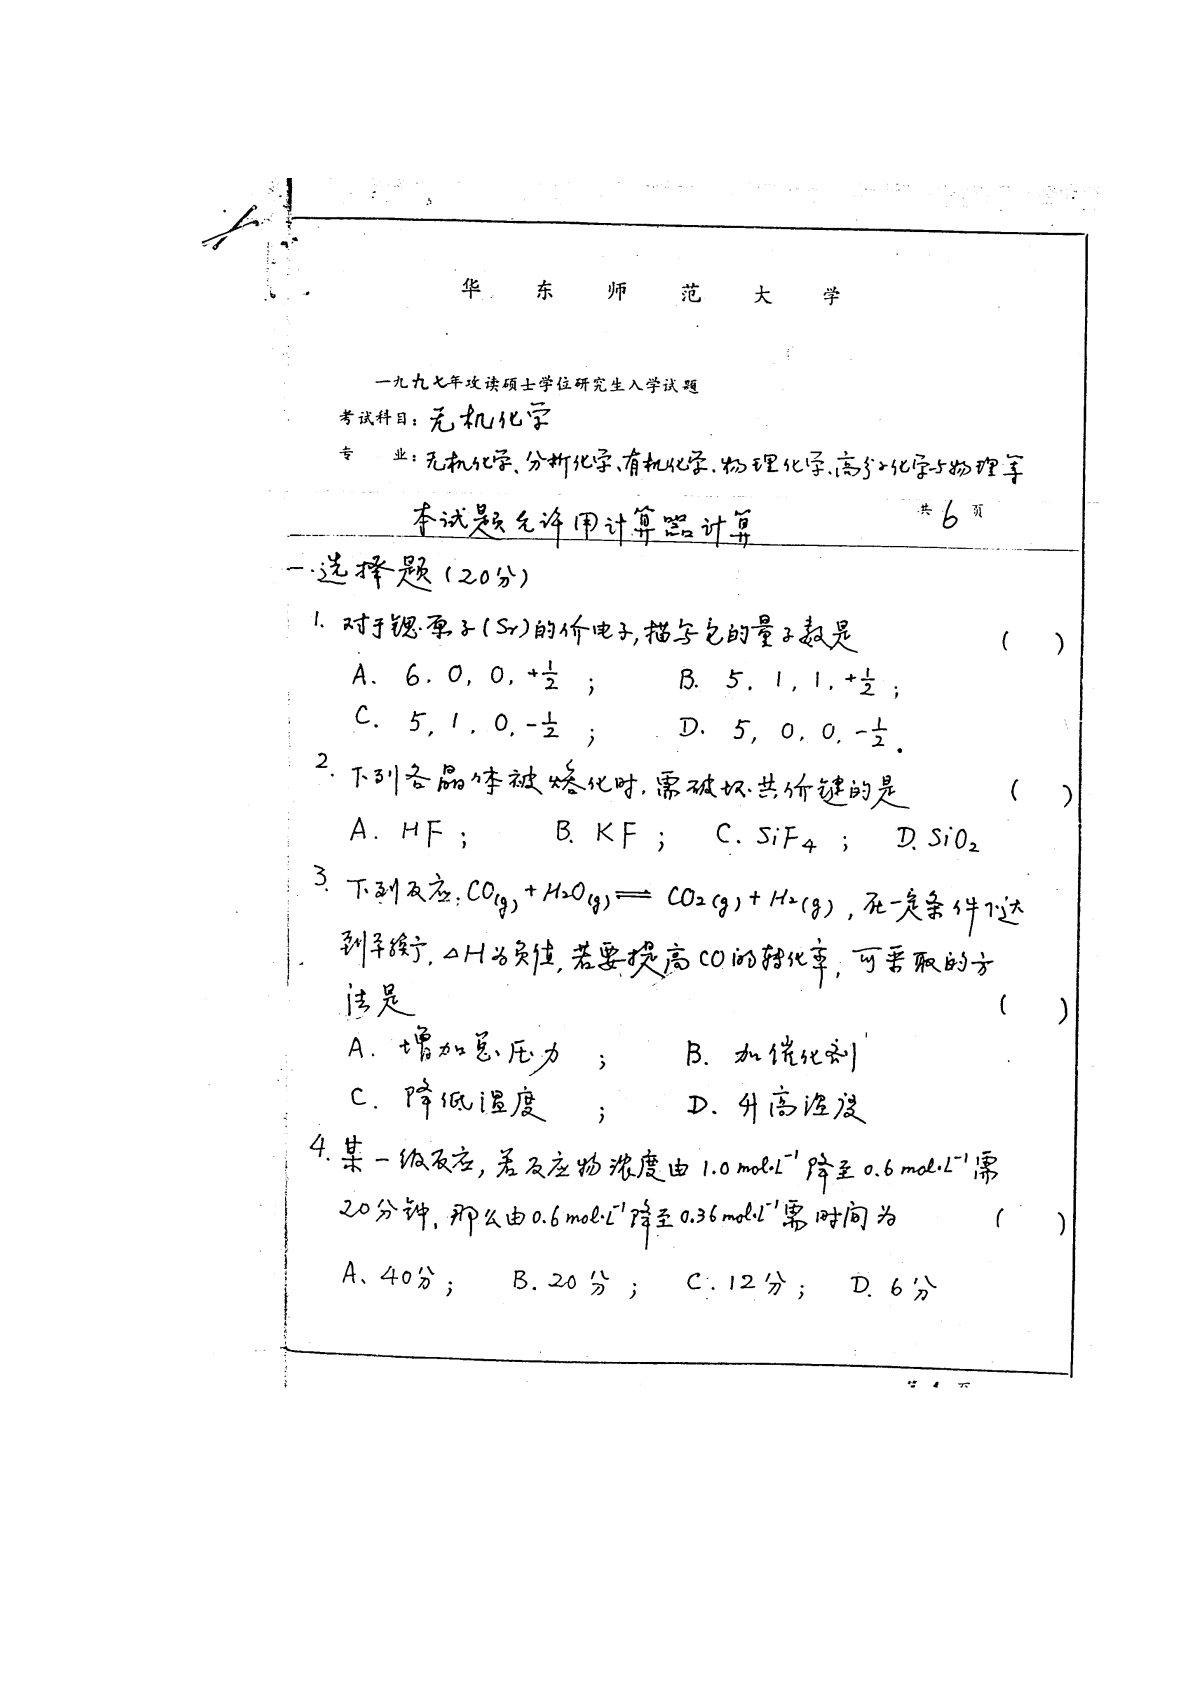 华东师范大学
一九九七年攻读硕士学位研究生入学试题
考试科目：无机化学
专 业：无机化学、分析化学、有机化学、物理化学、高分子化学与物理等
共 6 页
本试题允许用计算器计算
一.选择题(20分)
1. 对于锶原子(Sr)的价电子,描写它的量子数是 ( )
A. 6, 0, 0, +1/2 ; B. 5, 1, 1, +1/2 ;
C. 5, 1, 0, -1/2 ; D. 5, 0, 0, -1/2 .
2. 下列各晶体被熔化时,需破坏共价键的是 ( )
A. HF ; B. KF ; C. SiF₄ ; D. SiO₂
3. 下列反应: CO(g) + H₂O(g) ⇌ CO₂(g) + H₂(g) , 在一定条件下达
到平衡, △H为负值, 若要提高CO的转化率, 可采取的方
法是 ( )
A. 增加总压力 ; B. 加催化剂
C. 降低温度 ; D. 升高温度
4. 某一级反应, 若反应物浓度由1.0 mol·L⁻¹降至0.6 mol·L⁻¹需
20分钟, 那么由0.6 mol·L⁻¹降至0.36 mol·L⁻¹需时间为 ( )
A、40分 ; B. 20分 ; C. 12分 ; D. 6分